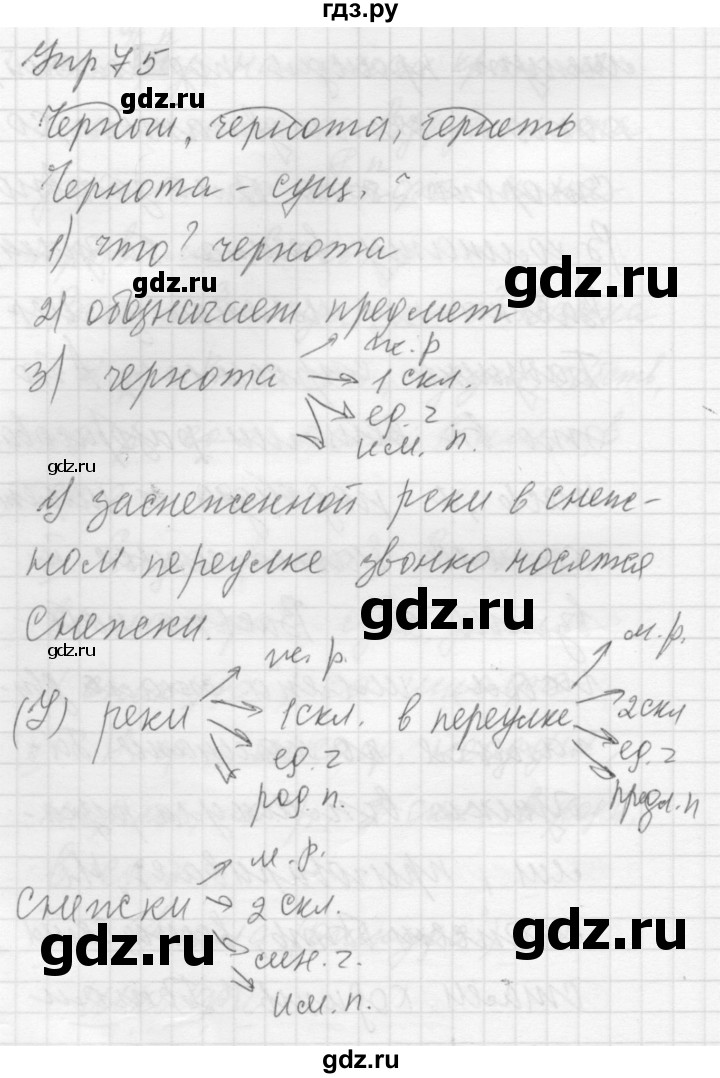 гдз.ру
Упр 75
gdz.ru
Черный, чернота, чернеть
Чернота - сущ.
1) что? чернота
gdz.ru
gdz.ru
2) обозначает предмет
ж. р
3) чернота 1 скл.
ед. ч.
им. п.
gdz.ru
gdz.ru
У заснеженной реки в снеж-
ном переулке звонко носятся
gdz.ru
Снежски.
gdz.ru
ж. р. м. р.
(У) реки 1 скл. в переулке 2 скл
ед. ч ед. ч
род. п. предл. п
м. р.
Снежски 2 скл.
gdz.ru
gdz.ru
мн. ч.
им. п.
gdz.ru